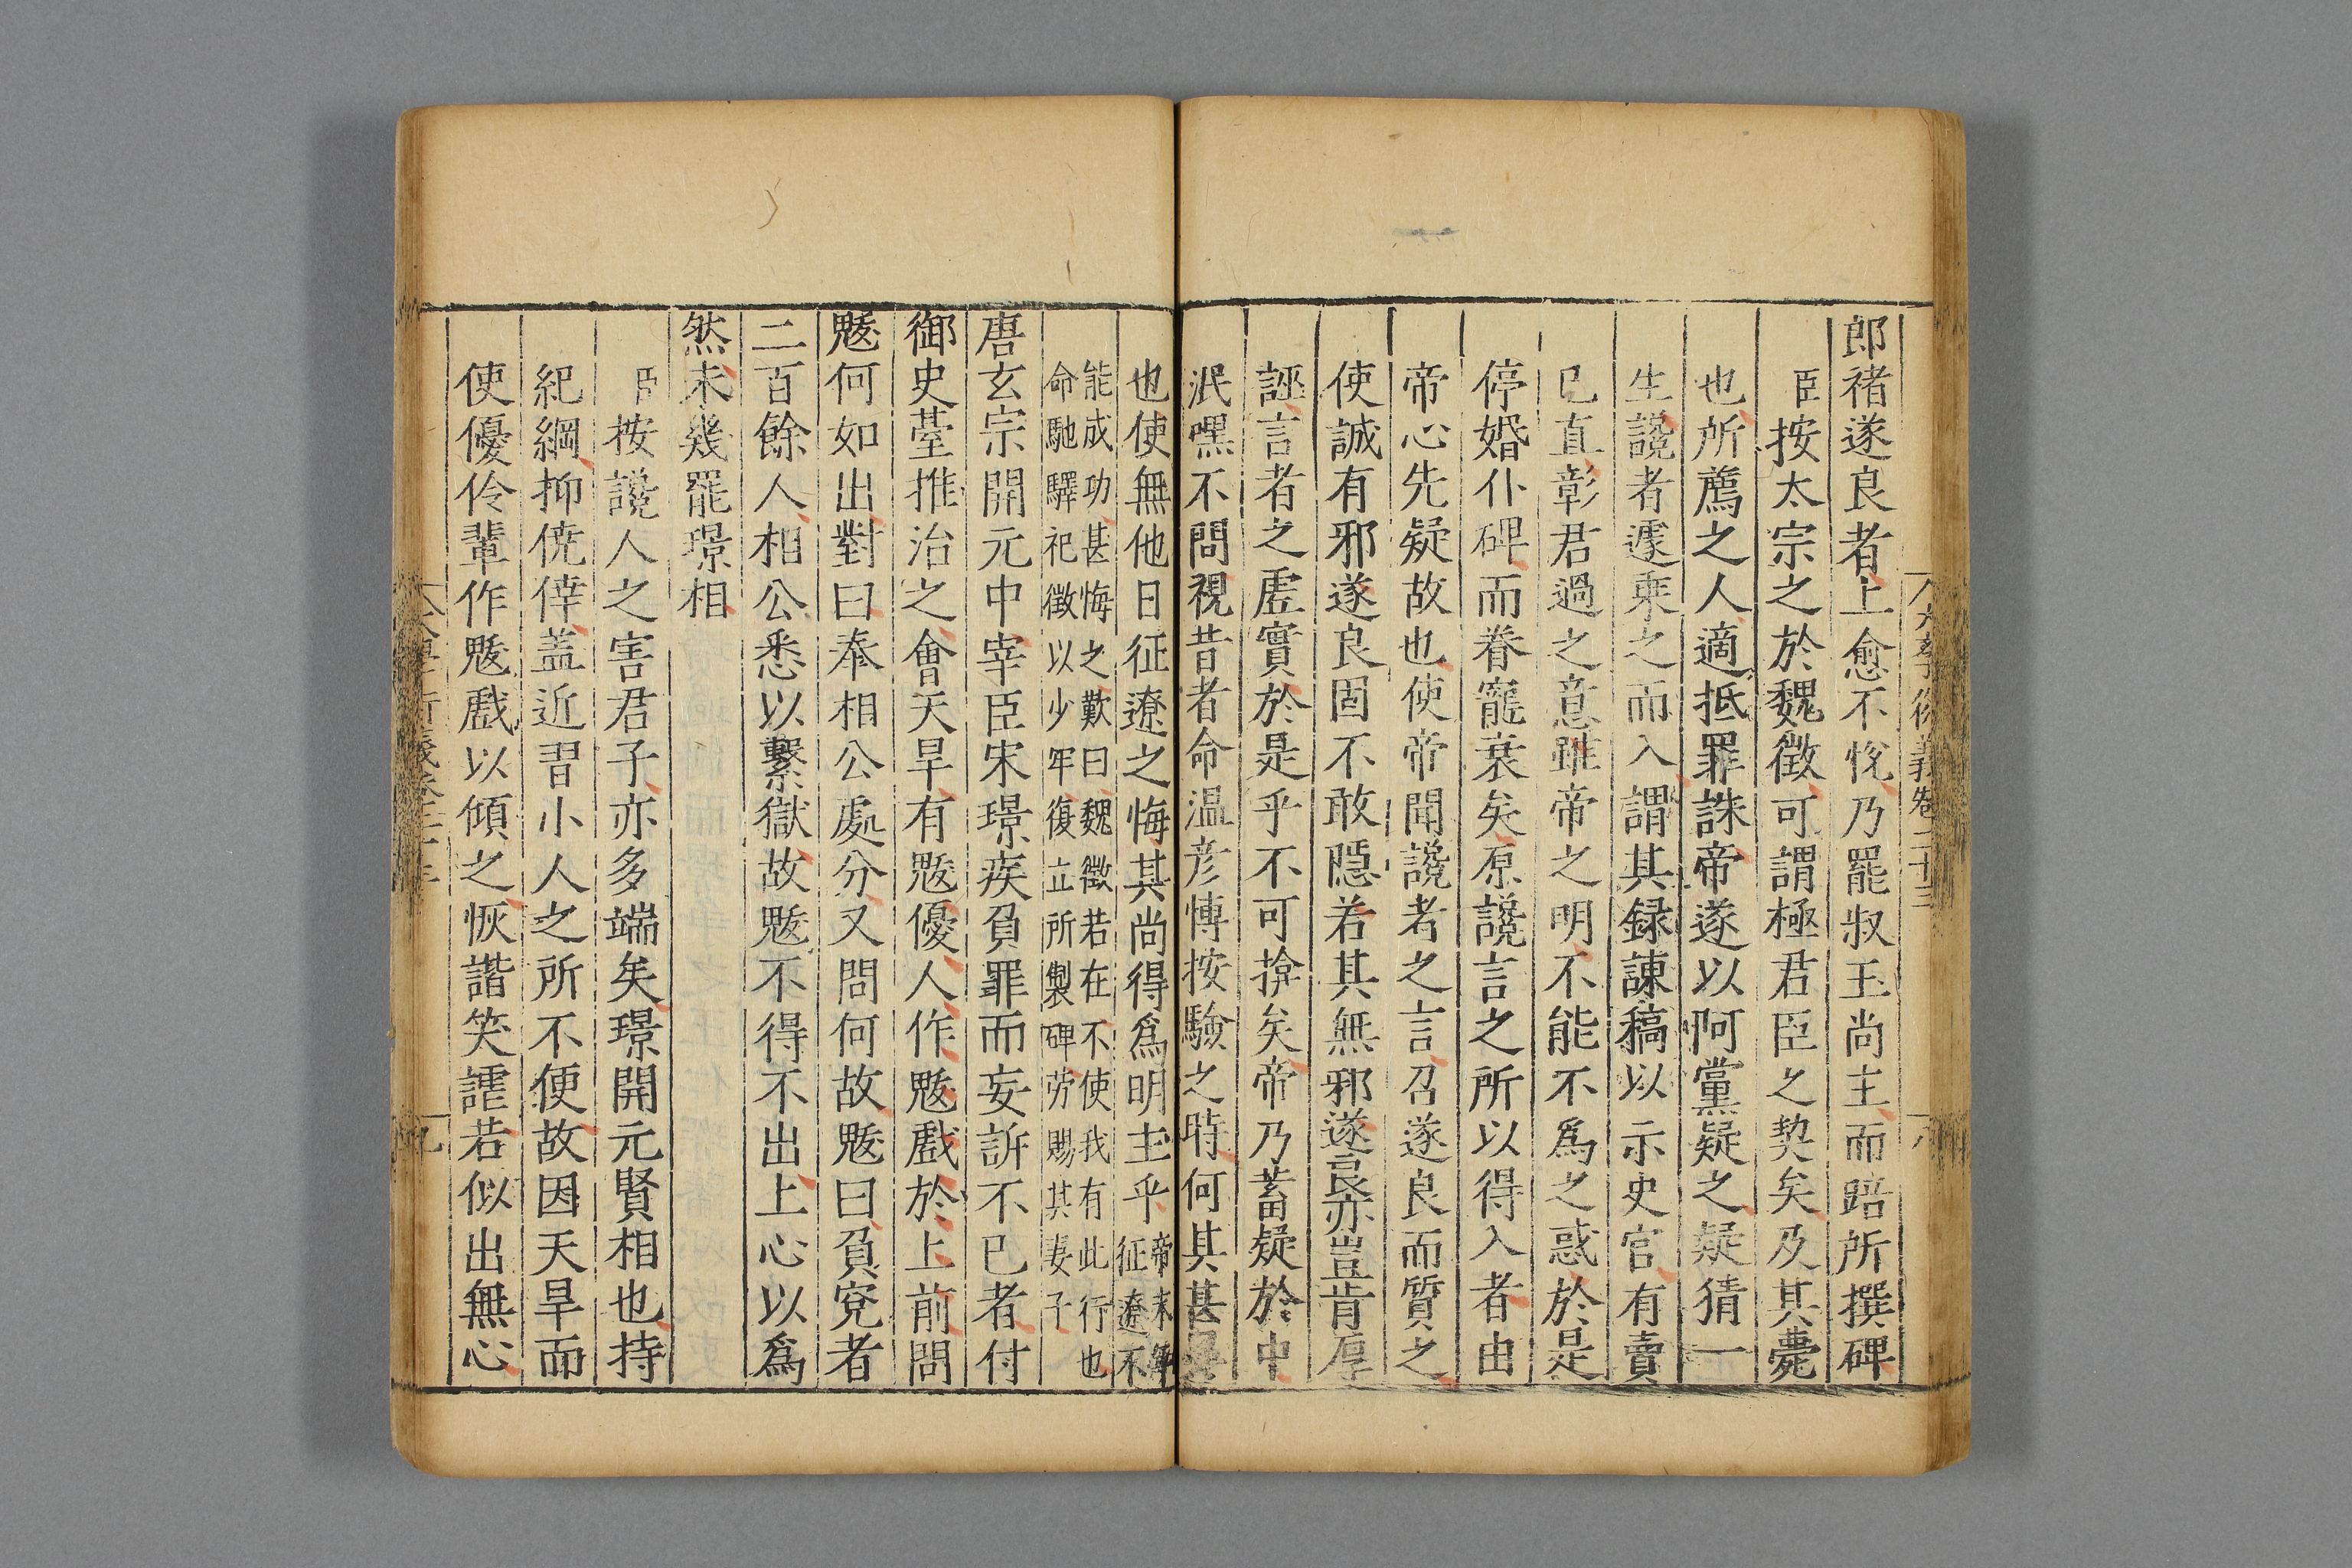 郎褚遂良者上愈不悅乃罷叔玉尚主而踣所撰碑
臣按太宗之於魏徵可謂極君臣之契矣及其薨
也所薦之人適抵罪誅帝遂以阿黨疑之疑猜一
生讒者遽乘之而入謂其録諫稿以示史官有賣
已直彰君過之意雖帝之明不能不爲之惑於是
停婚仆碑而眷寵衰矣原讒言之所以得入者由
帝心先疑故也使帝聞讒者之言召遂良而質之
使誠有邪遂良固不敢隱若其無邪遂良亦豈肯厚
誣言者之虛實於是乎不可揜矣帝乃蓄疑於中
泯嘿不問視昔者命温彦愽按驗之時何其甚
也使無他日征遼之悔其尚得爲明主乎帝末年征遼不
能成功甚悔之歎曰魏徵若在不使我有此行也
命馳驛祀徵以少牢復立所製碑勞賜其妻子
唐玄宗開元中宰臣宋璟疾負罪而妄訴不已者付
御史䑓推治之會天旱有魃優人作魃戲於上前問
魃何如出對曰奉相公處分又問何故魃曰負寃者
二百餘人相公悉以繫獄故魃不得不出上心以爲
然未幾罷璟相
臣按讒人之害君子亦多端矣璟開元賢相也持
紀綱抑僥倖盖近習小人之所不便故因天旱而
使優伶輩作魃戲以傾之恢諧笑謔若似出無心